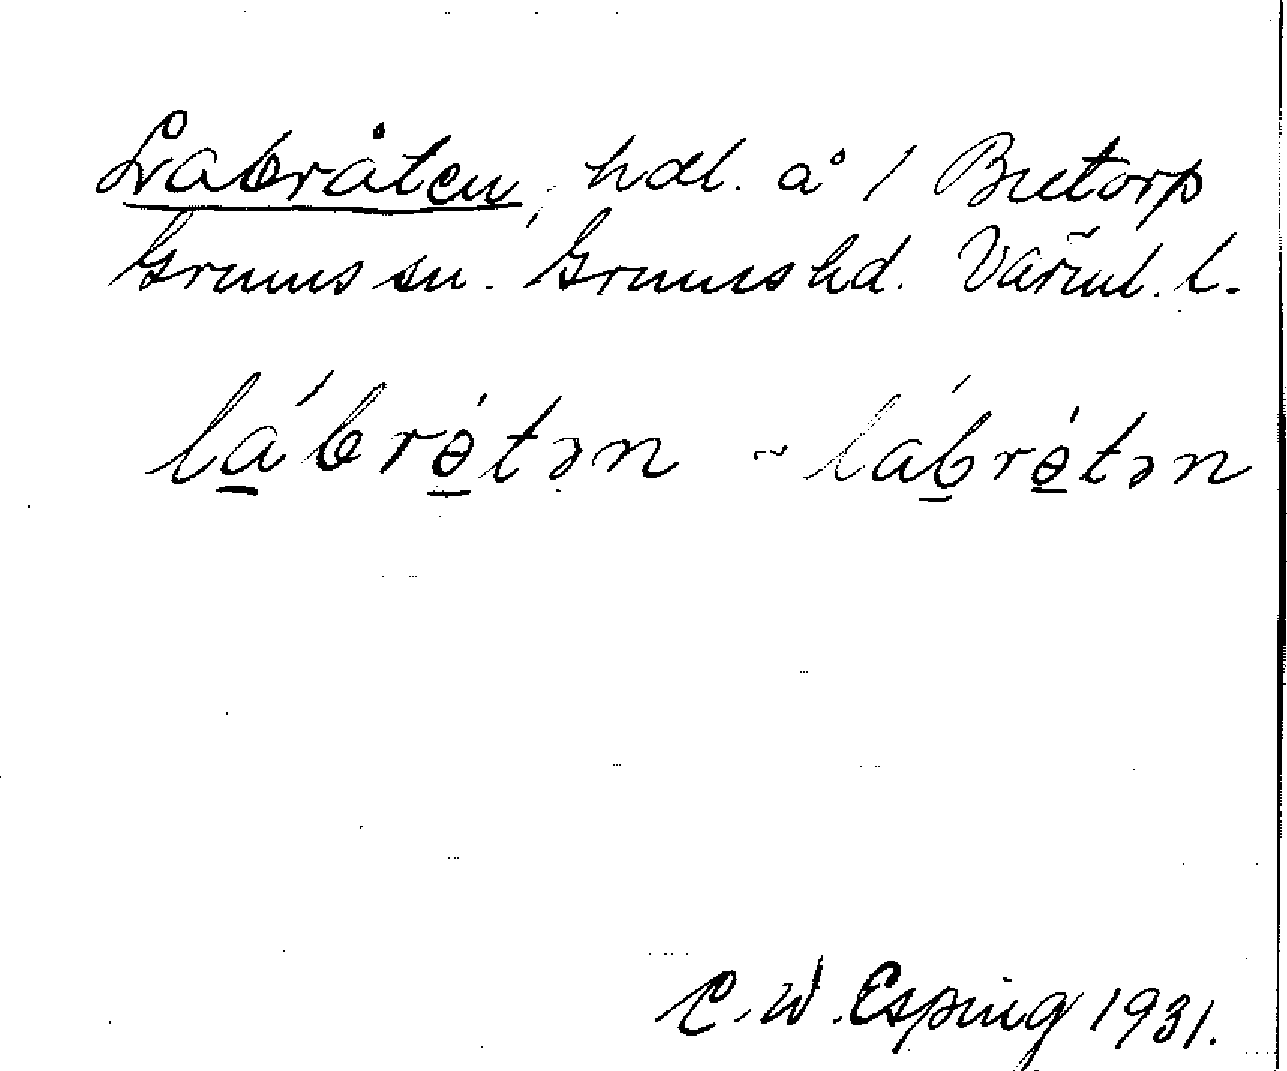 Labråten, hdl. å / Brettorp
Grums sn. Grums hd. Värml. l.
lábrǿtən ~ lábrǿtən
C. W. Esping 1931.